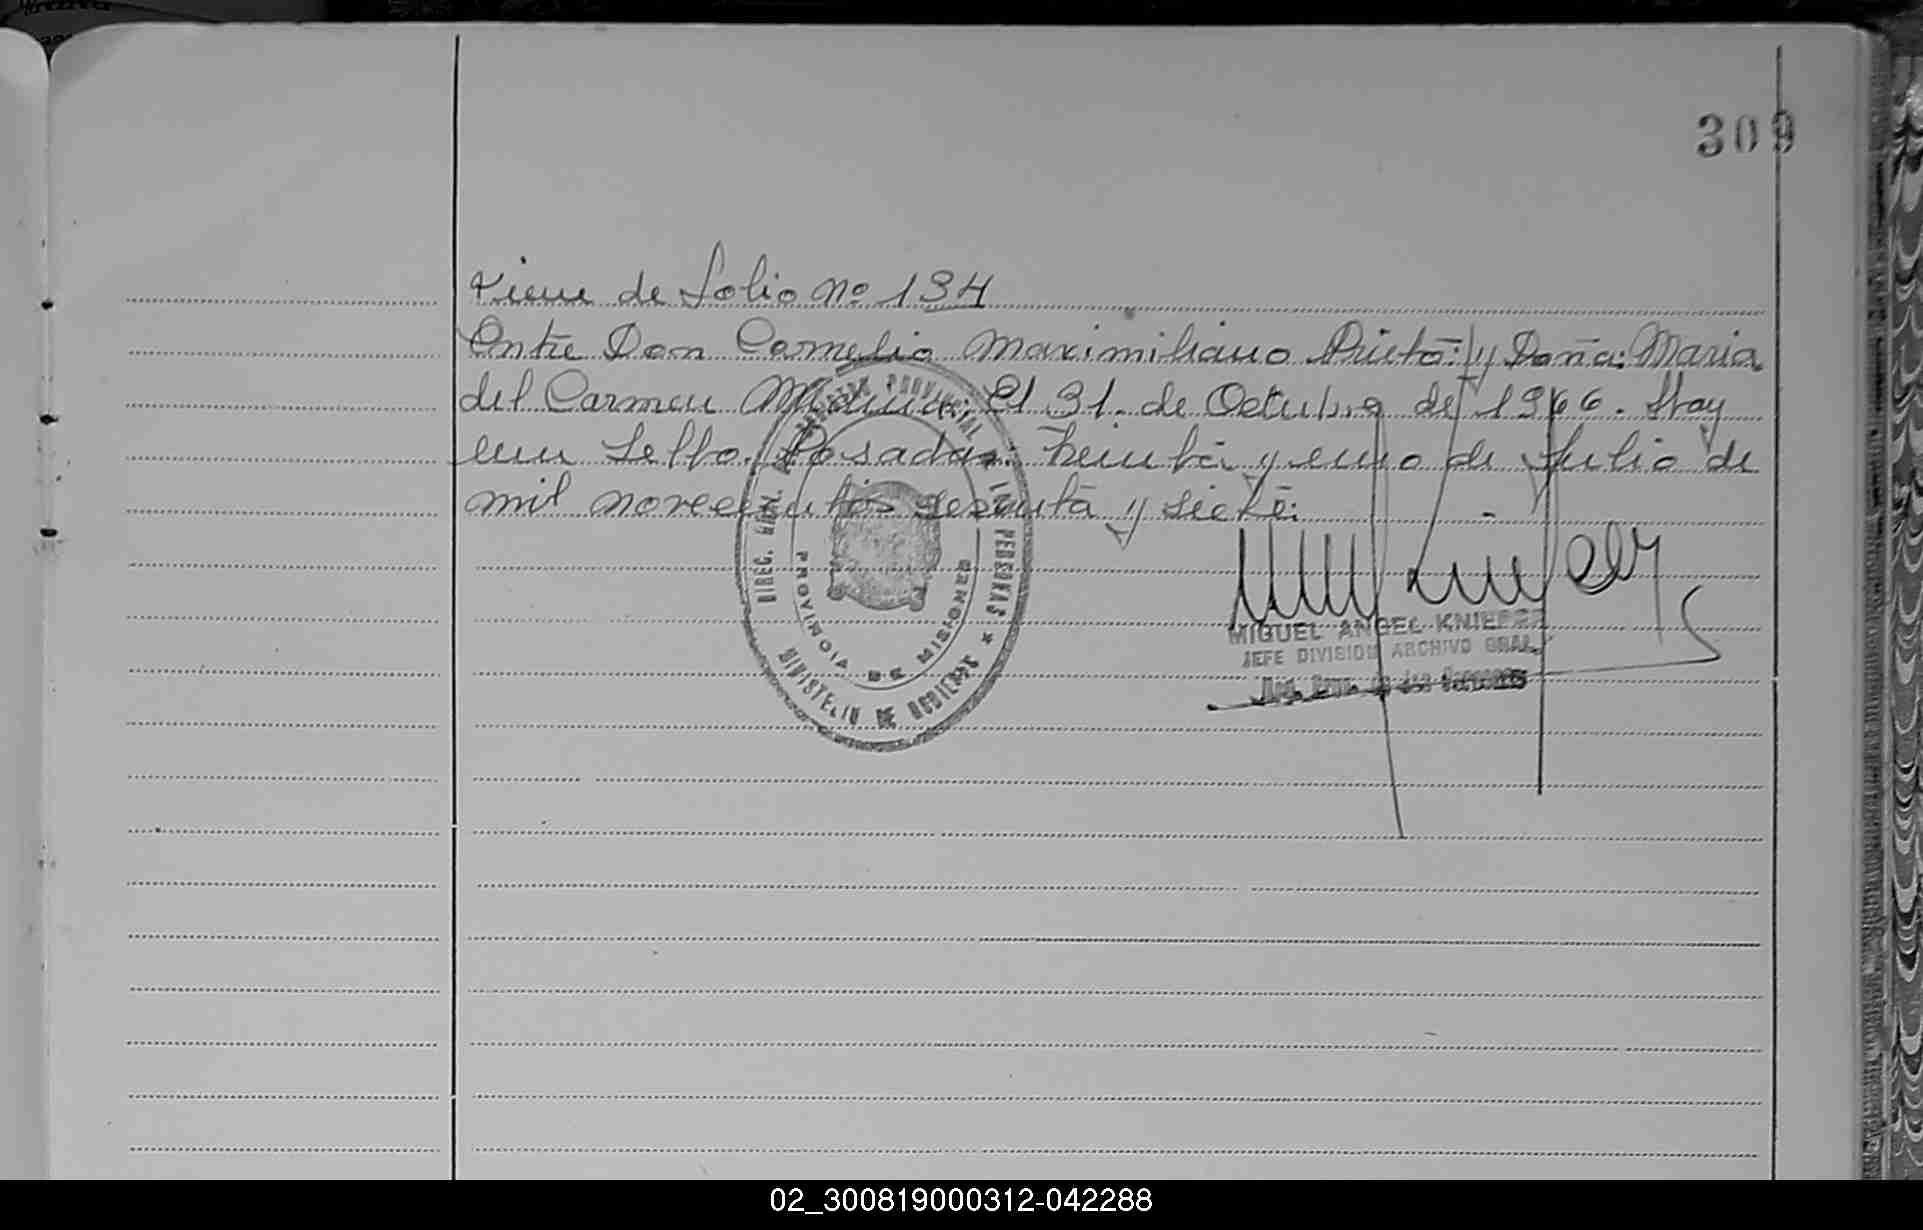 309
Viene de Folio No 134
Entre Don Cornelio Maximiliano Prieto: y Doña: Maria
del Carmen Medina. El 31. de Octubre de 1966. Hay
un Sello. Posadas: Treinta y uno de Julio de
mil novecientos sesenta y siete.
PROVINCIAL PERSONAS
DIREC. GRAL.
PROVINCIA DE MISIONES
MINISTERIO DE GOBIERNO
MIGUEL ANGEL
JEFE DIVISION ARCHIVO GRAL.
de las Personas
02_300819000312-042288